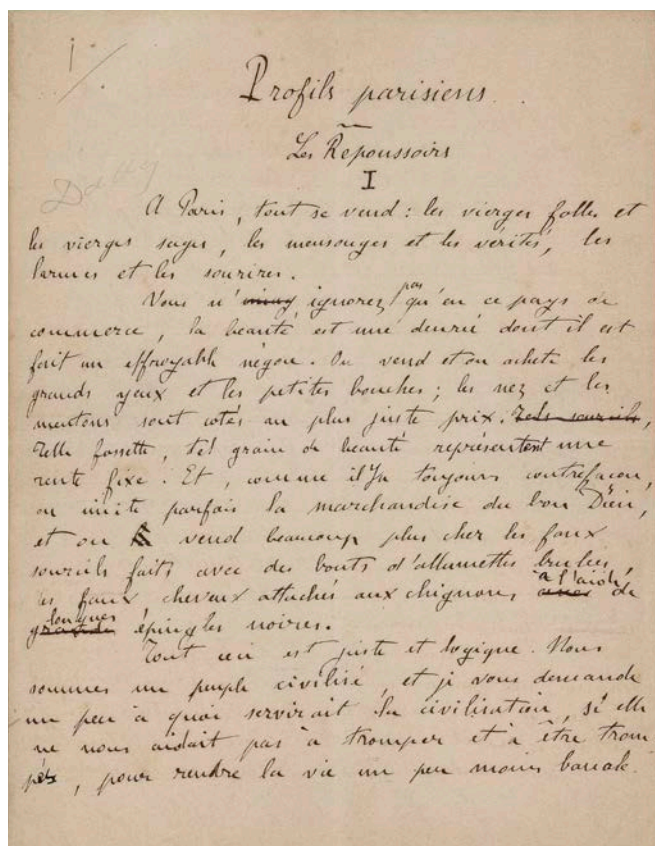 1
Profils parisiens.
Les Repoussoirs
I
A Paris, tout se vend : les vierges folles et
les vierges sages, les mensonges et les vérités, les
larmes et les sourires.
Vous n' ignorez pas qu'en ce pays de
commerce, la beauté est une denrée dont il est
fait un effroyable négoce. On vend et on achète les
grands yeux et les petites bouches ; les nez et les
mentons sont cotés au plus juste prix. Tels sourcils,
Telle fossette, tel grain de beauté représentent une
rente fixe. Et, comme il y a toujours contrefaçon,
on imite parfois la marchandise du bon Dieu,
et on vend beaucoup plus cher les faux
sourcils faits avec des bouts d'allumettes brulées,
les faux cheveux attachés aux chignons avec à l'aide de
longues épingles noires.
Tout ceci est juste et logique. Nous
sommes un peuple civilisé, et je vous demande
un peu à quoi servirait la civilisation, si elle
ne nous aidait pas à tromper et à être trom
pés, pour rendre la vie un peu moins banale.